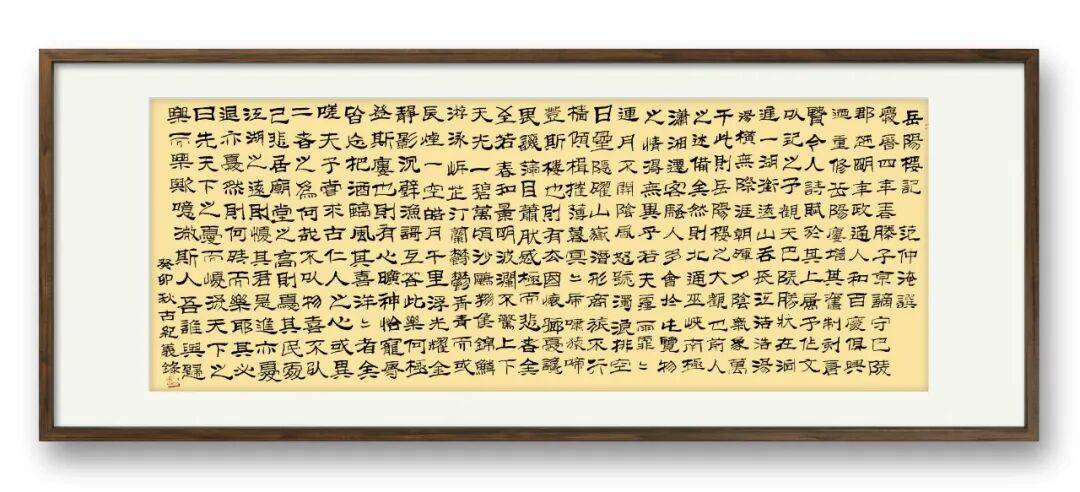 岳陽樓記 范仲淹譔
慶曆四年春滕子京謫守巴陵
郡越明年政通人和百廢俱興
迺重修岳陽樓增其舊制刻唐
賢今人詩賦於其上屬予作文
以記之予觀夫巴陵勝狀在洞
庭一湖銜遠山吞長江浩浩湯
湯橫無際涯朝暉夕陰氣象萬
千此則岳陽樓之大觀也前人
之述備矣然則北通巫峽南極
瀟湘遷客騷人多會於此覽物
之情得無異乎若夫霪雨霏〻
連月不開陰風怒號濁浪排空
日星隱曜山嶽潛形商旅不行
檣傾楫摧薄暮冥〻虎嘯猿啼
登斯樓也則有去國懷鄉憂讒
畏譏滿目蕭然感極而悲者矣
至若春和景明波瀾不驚上下
天光一碧萬頃沙鷗翔集錦鱗
游泳岸芷汀蘭鬱鬱青青而或
長煙一空皓月千里浮光耀金
靜影沉璧漁歌互答此樂何極
登斯樓也則有心曠神怡寵辱
皆忘把酒臨風其喜洋〻者矣
嗟夫予嘗求古仁人之心或異
二者之為何哉不以物喜不以
己悲居廟堂之高則憂其民處
江湖之遠則憂其君是進亦憂
退亦憂然則何時而樂耶其必
曰先天下之憂而憂後天下之
樂而樂歟噫微斯人吾誰與歸
癸卯秋古紀義錄